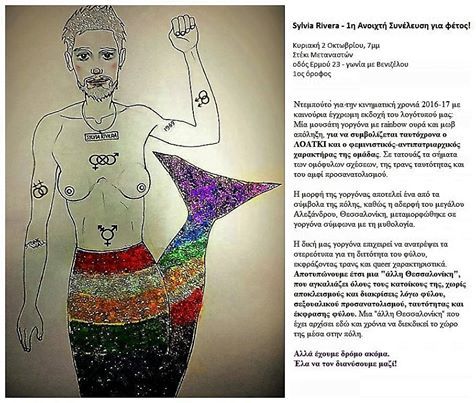 Sylvia Rivera - 1η Ανοιχτή Συνέλευση για φέτος!
Κυριακή 2 Οκτωβρίου, 7μμ
Στέκι Μεταναστών
οδός Ερμού 23 - γωνία με Βενιζέλου
1ος όροφος
Ντεμπούτο για την κινηματική χρονιά 2016-17 με
καινούρια έγχρωμη εκδοχή του λογότυπού μας:
Μία μουσάτη γοργόνα με rainbow ουρά και μωβ
απόληξη, για να συμβολίζεται ταυτόχρονα ο
ΛΟΑΤΚΙ και ο φεμινιστικός-αντιπατριαρχικός
χαρακτήρας της ομάδας. Σε τατουάζ, τα σήματα
των ομόφυλων σχέσεων, της τρανς ταυτότητας και
του αμφί προσανατολισμού.
Η μορφή της γοργόνας αποτελεί ένα από τα
σύμβολα της πόλης, καθώς η αδερφή του μεγάλου
Αλεξάνδρου, Θεσσαλονίκη, μεταμορφώθηκε σε
γοργόνα σύμφωνα με τη μυθολογία.
Η δική μας γοργόνα επιχειρεί να ανατρέψει τα
στερεότυπα για τη διττότητα του φύλου,
εκφράζοντας τρανς και queer χαρακτηριστικά.
Αποτυπώνουμε έτσι μια "άλλη Θεσσαλονίκη",
που αγκαλιάζει όλους τους κατοίκους της, χωρίς
αποκλεισμούς και διακρίσεις λόγω φύλου,
σεξουαλικού προσανατολισμού, ταυτότητας και
έκφρασης φύλου. Μια "άλλη Θεσσαλονίκη" που
έχει αρχίσει εδώ και χρόνια να διεκδικεί το χώρο
της μέσα στην πόλη.
Αλλά έχουμε δρόμο ακόμα.
Έλα να τον διανύσουμε μαζί!
SYLVIA RIVERA
1969